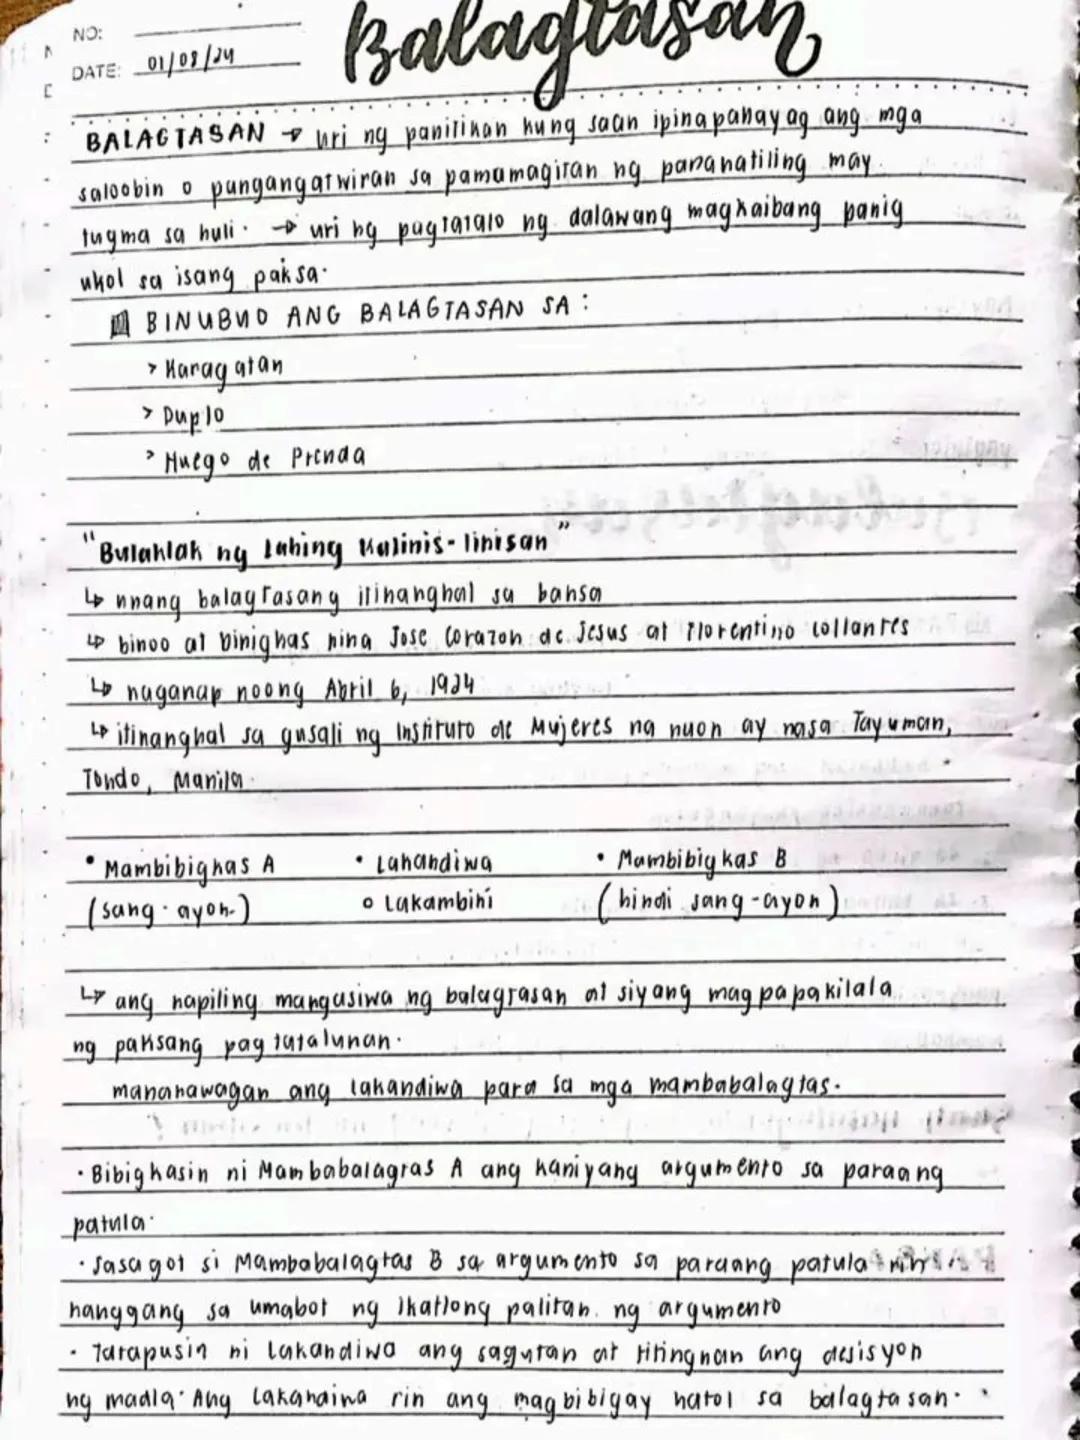 NO:
DATE: 01/08/24
Balagtasan
BALAGTASAN → uri ng panitikan kung saan ipinapahayag ang mga
saloobin o pangangatwiran sa pamamagitan ng pananatiling may
tugma sa huli. → uri ng pagtatalo ng dalawang magkaibang panig
ukol sa isang paksa.
BINUBUO ANG BALAGTASAN SA:
> Karagatan
> Duplo
> Huego de Prenda
"Bulaklak ng Lahing Kalinis-linisan"
↳ unang balagtasang itinanghal sa bansa
↳ binoo at binigkas nina Jose Corazon de Jesus at Florentino Collantes
↳ naganap noong Abril 6, 1924
↳ itinanghal sa gusali ng Instituto de Mujeres na nuon ay nasa Tayuman,
Tondo, Manila.
• Mambibigkas A • Lakandiwa • Mambibigkas B
(sang-ayon) o Lakambini (hindi sang-ayon)
↳ ang napiling mangasiwa ng balagtasan at siyang magpapakilala
ng paksang pagtatalunan.
mananawagan ang lakandiwa para sa mga mambabalagtas.
• Bibigkasin ni Mambabalagtas A ang kaniyang argumento sa paraang
patula.
• Sasagot si Mambabalagtas B sa argumento sa paraang patula rin
hanggang sa umabot ng ikatlong palitan ng argumento
• Tatapusin ni Lakandiwa ang sagutan at titingnan ang desisyon
ng madla. Ang Lakandina rin ang magbibigay hatol sa balagtasan.